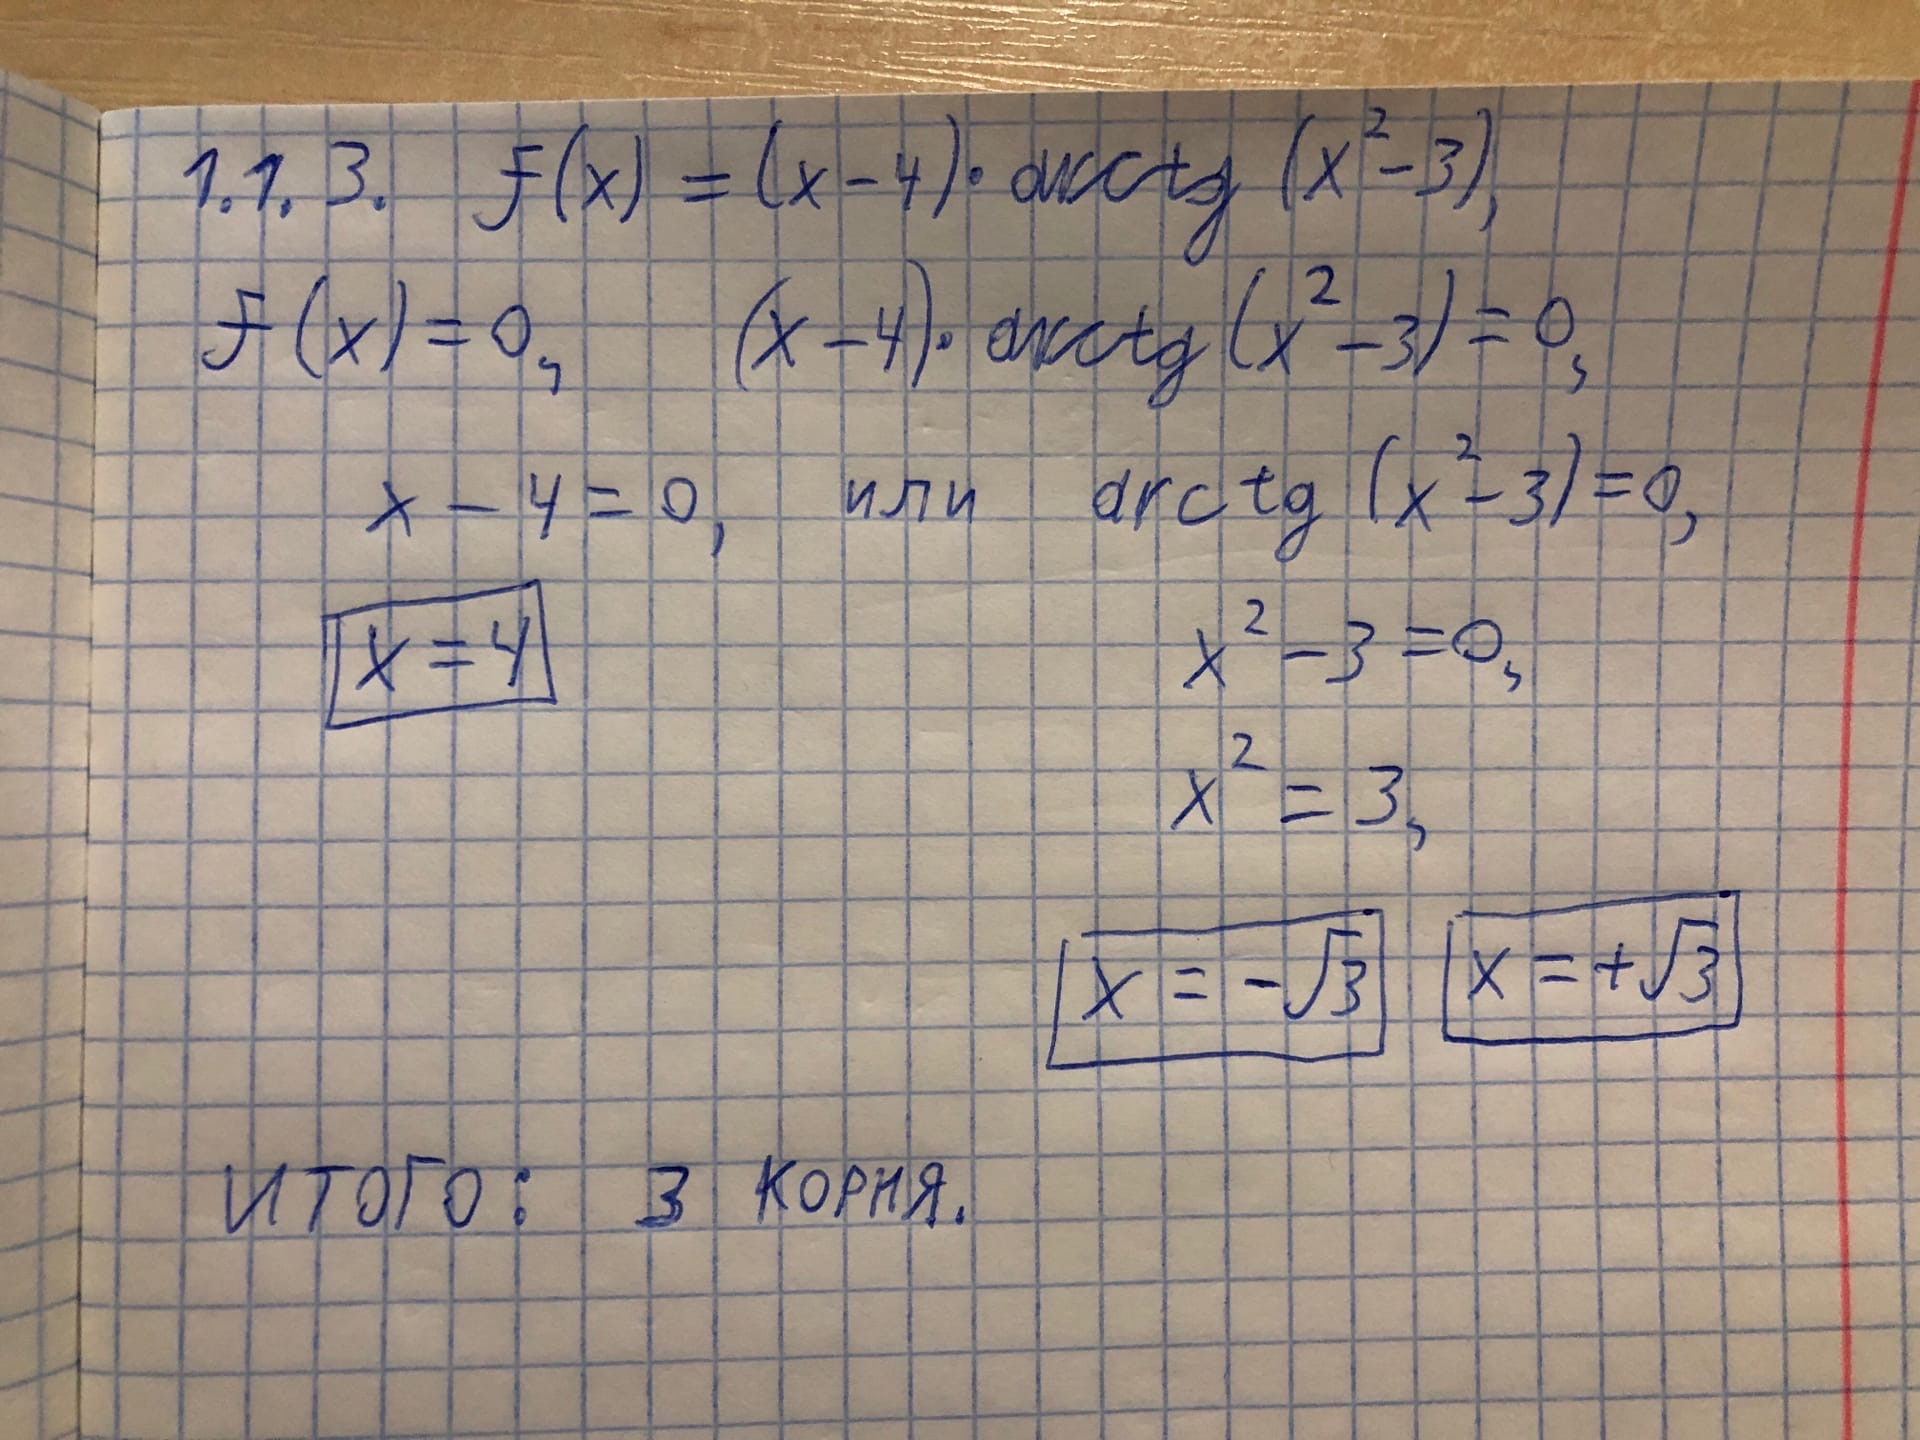 1.1.3. f(x) = (x-4)·arctg(x²-3),
f(x)=0, (x-4)·arctg(x²-3)=0,
x-4=0, или arctg(x²-3)=0,
x=4 x²-3=0,
x²=3,
x=-√3 x=+√3
ИТОГО: 3 КОРНЯ.